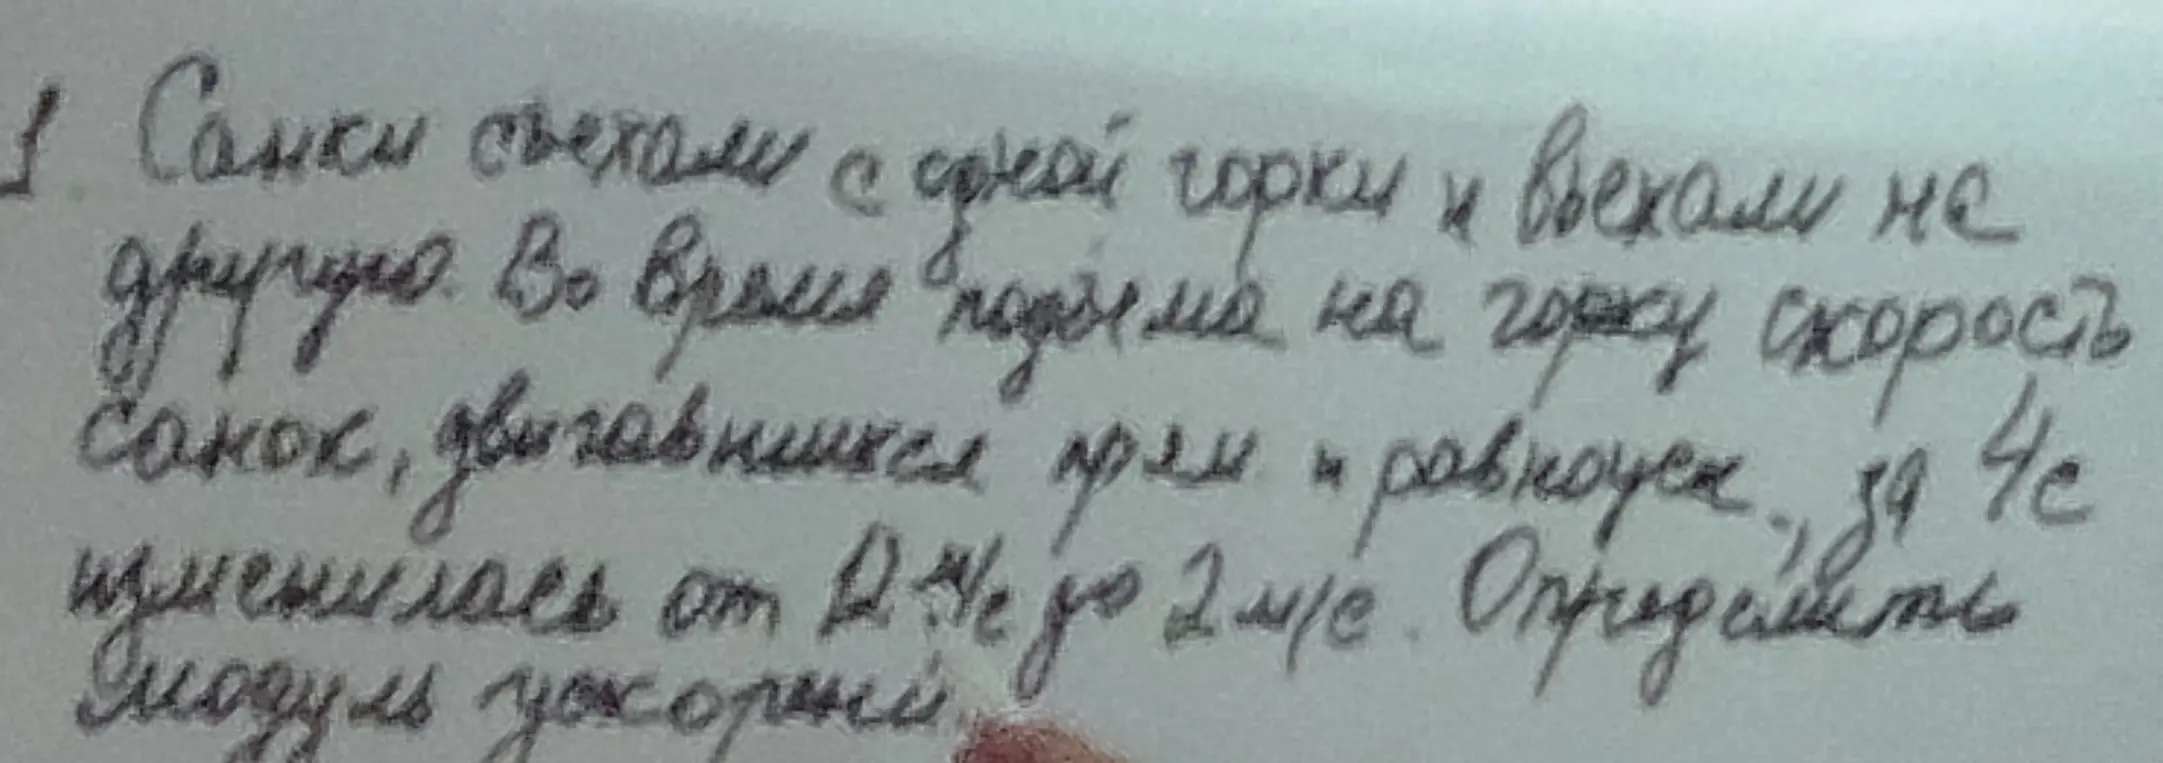 1. Санки съехали с одной горки и въехали на
другую. Во время подъема на горку скорость
санок, двигавшихся прям и равноуск., за 4с
изменилась от 12 м/с до 2 м/с. Определить
модуль ускорний